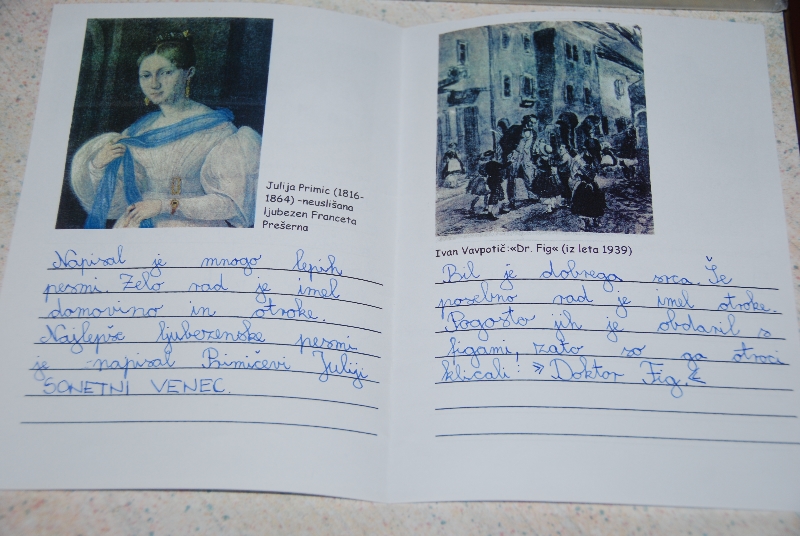 Julija Primic (1816-
1864) -neuslišana
ljubezen Franceta
Prešerna
Napisal je mnogo lepih
pesmi. Zelo rad je imel
domovino in otroke.
Najlepše ljubezenske pesmi
je napisal Primičevi Juliji
SONETNI VENEC.
Ivan Vavpotič:«Dr. Fig« (iz leta 1939)
Bil je dobrega srca. Še
posebno rad je imel otroke.
Pogosto jih je obdaril s
figami, zato so ga otroci
klicali: »Doktor Fig.«